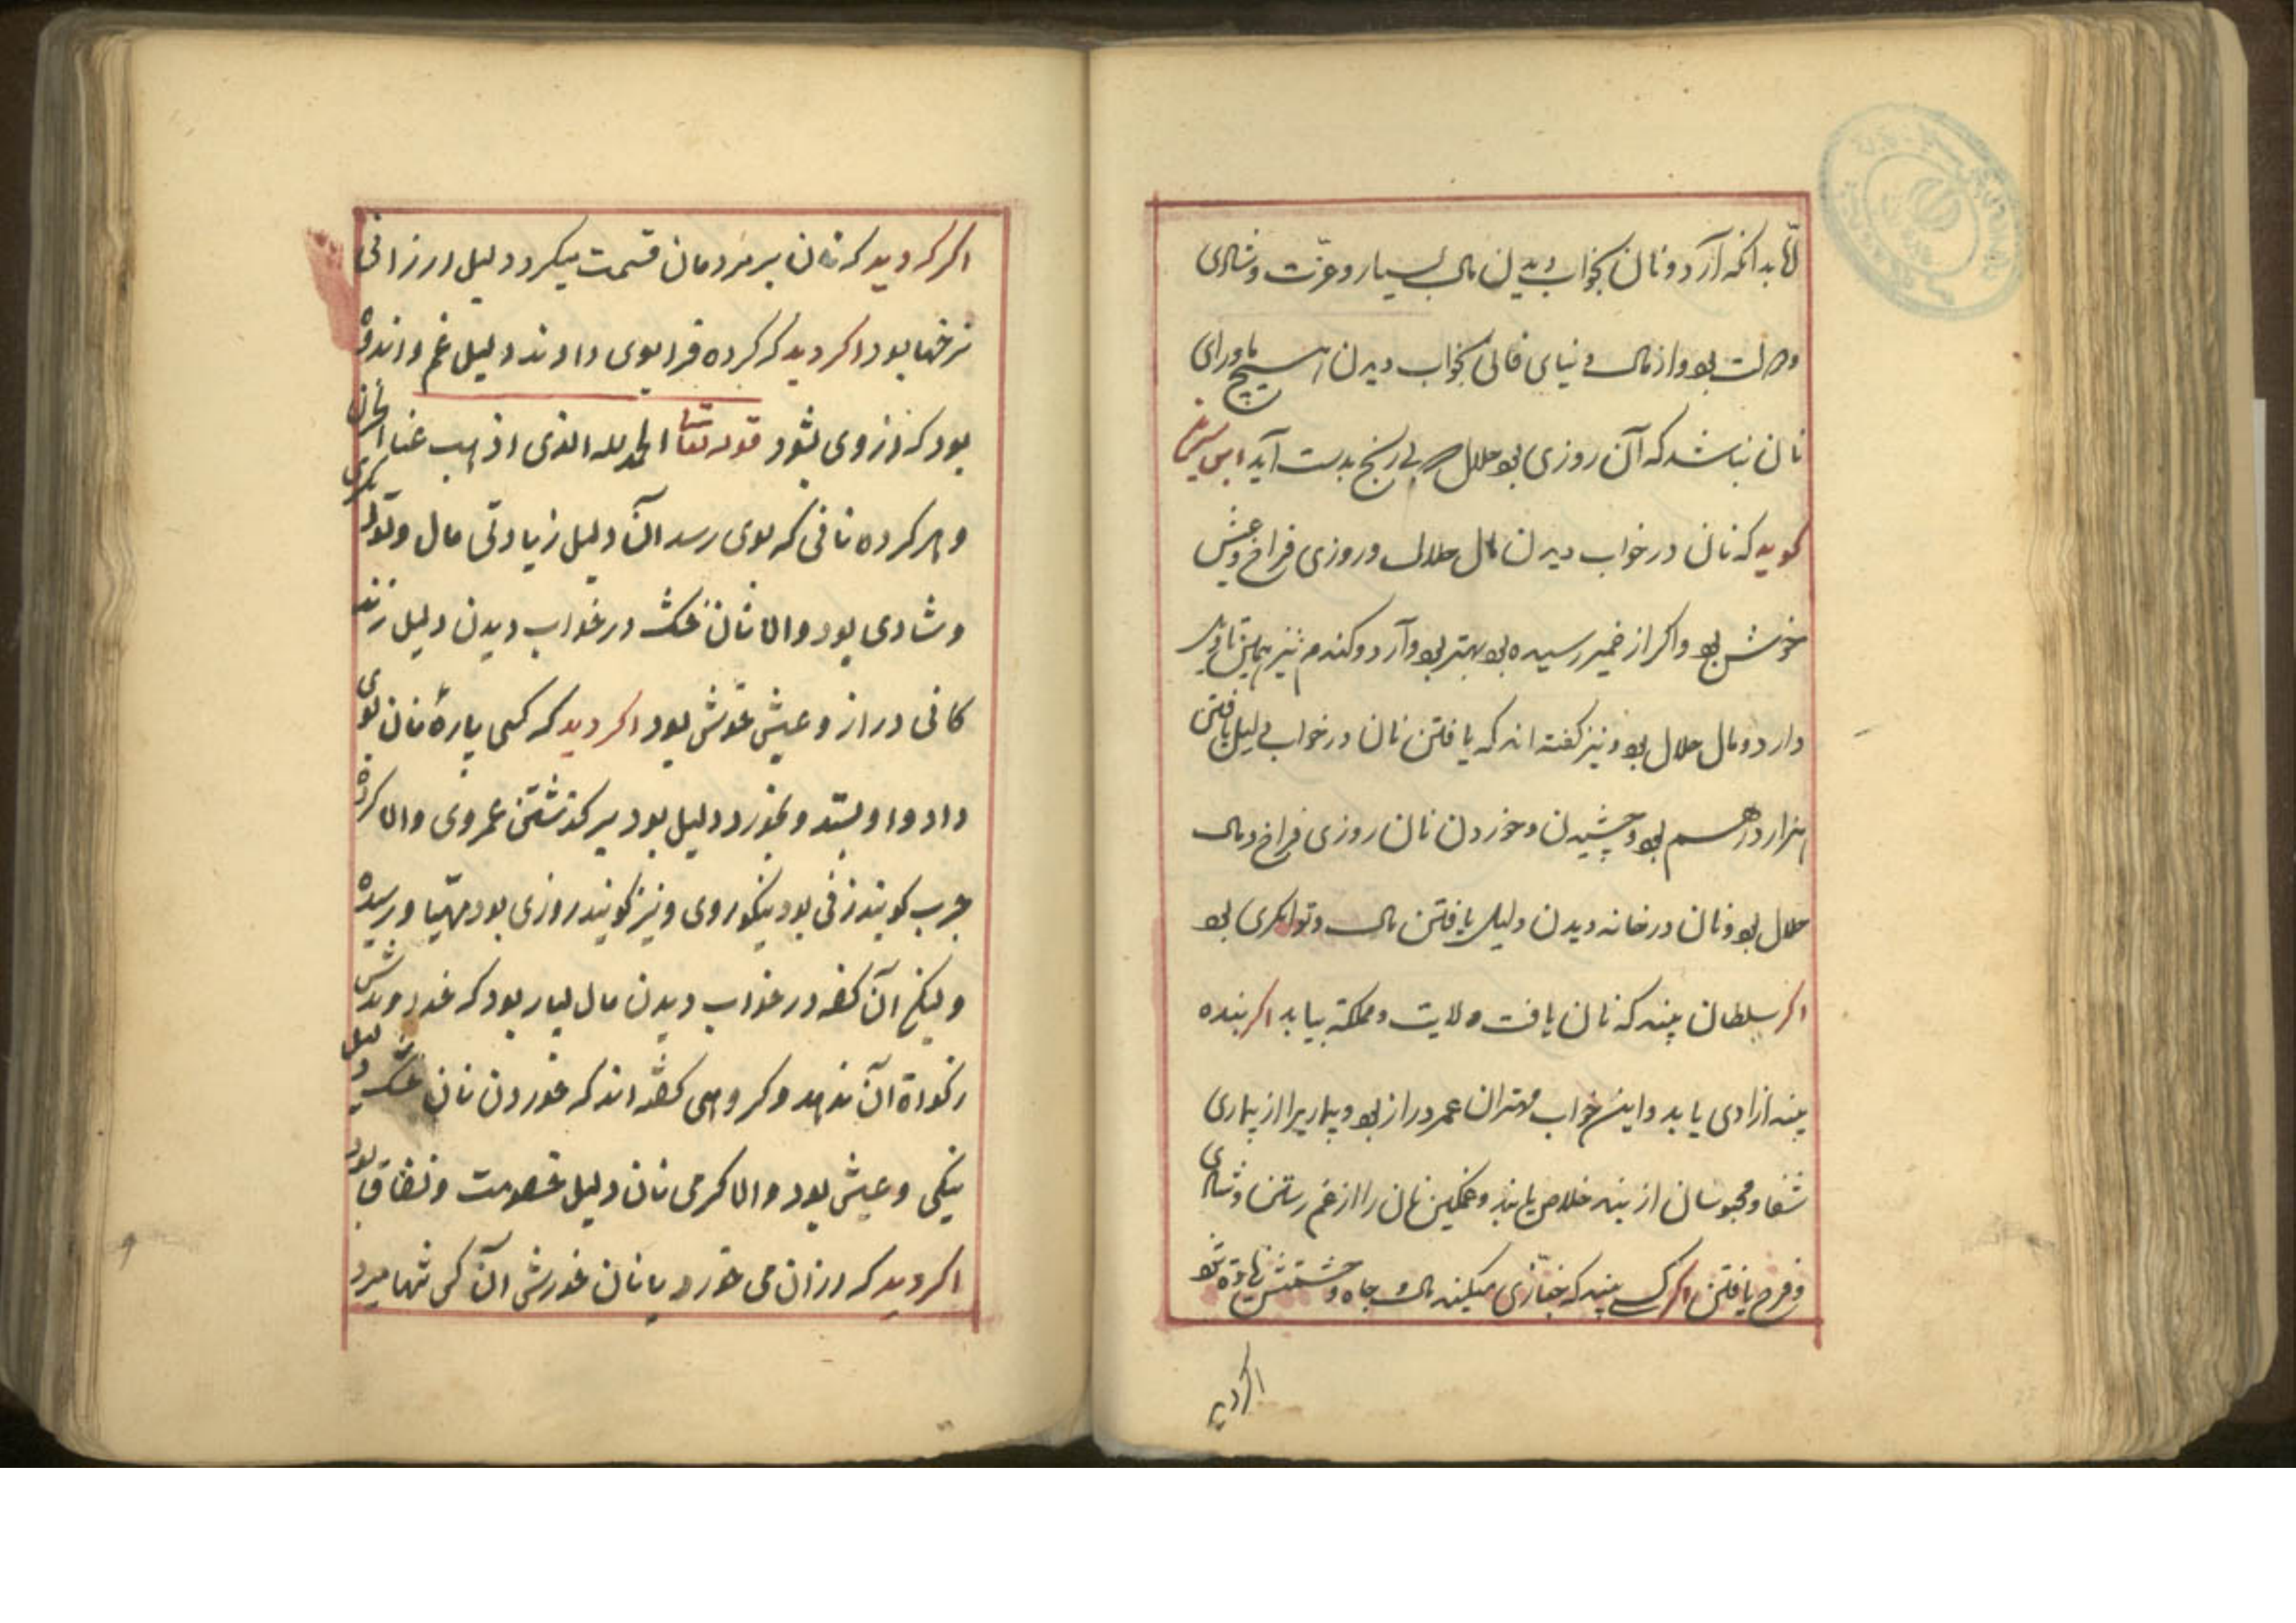 امّا بدانکه آرد و نان بخواب دیدن مال بسیار و عزّت و شادی
و دولت بود و از مال دنیای فانی بخواب دیدن هیچ ماورای
نان نباشد که آن روزی بود حلال که بی رنج بدست آید ابن سیرین
کوید که نان در خواب دیدن مال حلال و روزی فراخ و عیش
خوش بود و اکر از خمیر رسیده بود بهتر بود و آرد و کندم نیز همین تاویل
دارد و مال حلال بود و نیز کفته اند که یافتن نان در خواب دلیل یافتن
هزار درهم بود و چشیدن و خوردن نان روزی فراخ و مال
حلال بود و نان در خانه دیدن دلیل یافتن مال و توانکری بود
اکر سلطان بیند که نان یافت ولایت و مملکة بیابد اکر بنده
بیند ازادی یابد و این خواب مهتران عمر دراز بود و بیمار را از بیماری
شفا و محبوسان از بند خلاص یابند و غمکین نان را از غم رستن و شادی
و فرح یافتن اکر کسی بیند که خبّازی میکند مال و جاه و حشمتش زیاده شود
اکر دید
اکر کر دید که نان بر مردمان قسمت میکرد دلیل ارزانی
نرخها بود اکر دید که کرده فرا بوی دادند دلیل غم و اندوه
بود که از وی بشود قوله تعالی الحمد لله الذی اذهب عنا الحزن
و هر کرده نانی که بوی رسد آن دلیل زیادتی مال و
و شادی بود و اما نان خشک در خواب دیدن دلیل زند
کانی دراز و عیش خوش بود اکر دید که کسی پارهٔ نان بوی
داد و او بستد و بخورد دلیل بود بر کذشتن عمر وی و اما کرده
چرب کویند زنی بود نیکوروی و نیز کویند روزی بود مهیّا و رسیده
و لیکن آن کفه در خواب دیدن مال بسیار بود که خداوندش
زکواة آن ندهد و کروهی کفته اند که خوردن نان خشک دلیل
نیکی و عیش بود و اما کرمی نان دلیل خصومت و نفاق بود
اکر دید که ارزان می خورد یا نان خورش آن کس تنها میرد